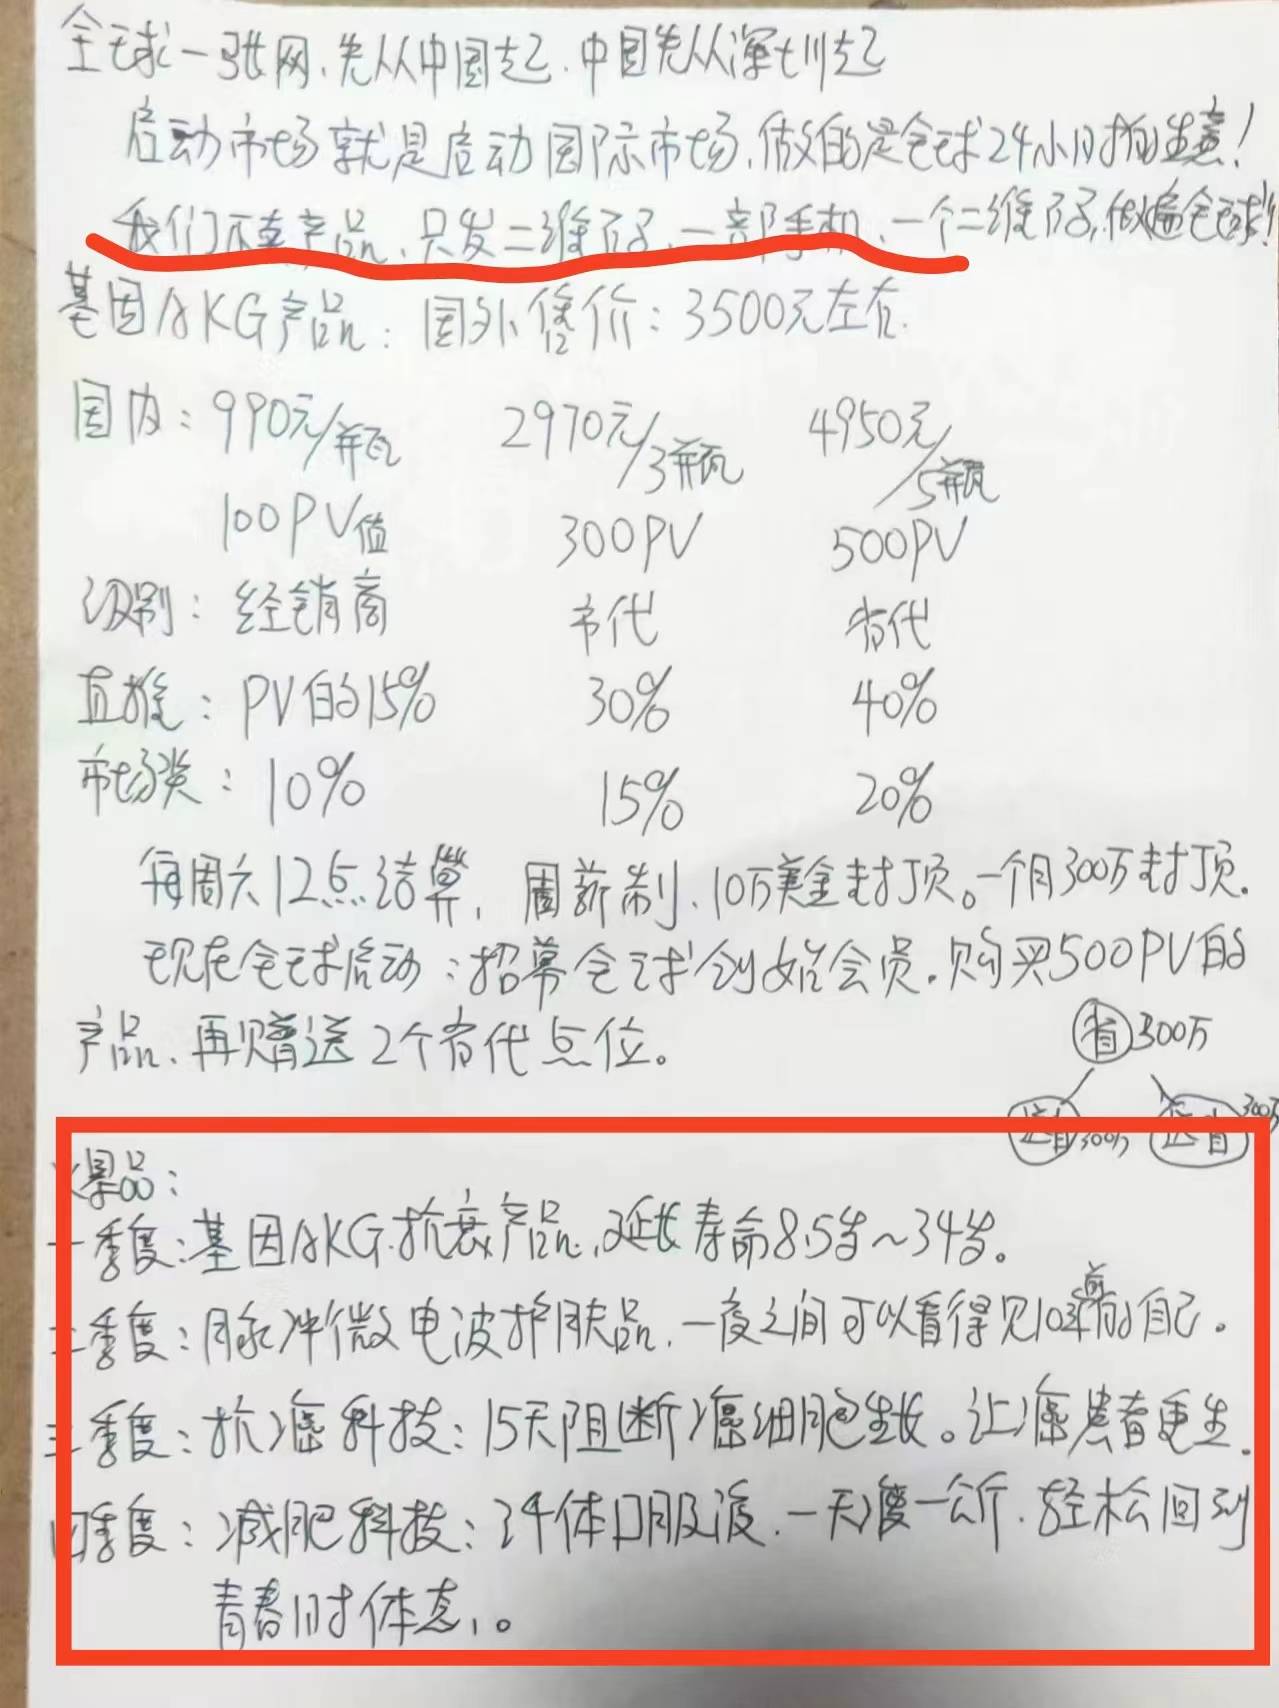 全球一张网,先从中国起.中国先从深圳起
启动市场就是启动国际市场,做的是全球24小时的生意!
我们不卖产品,只发二维码,一部手机,一个二维码,做遍全球!
基因AKG产品:国外售价:3500元左右.
国内:990元/瓶 2970元/3瓶 4950元/5瓶
100PV值 300PV 500PV
级别:经销商 市代 省代
直推:PV的15% 30% 40%
市场类:10% 15% 20%
每周六12点结算,周薪制,10万美金封顶。一个月300万封顶.
现在全球启动:招募全球创始会员.购买500PV的
产品,再赠送2个省代点位。
省 300万
送省 300万 送省 300万
爆品:
一季度:基因AKG.抗衰产品,延长寿命8.5岁~34岁。
二季度:脉冲微电波护肤品,一夜之间可以看得见10年前的自己。
三季度:抗癌科技:15天阻断癌细胞生长。让癌患者更生.
四季度:减肥科技:口服液,一天瘦一公斤.轻松回到
青春时体态。